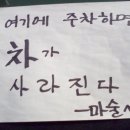 여기에 주차하면
차가
사라진다
-마술사